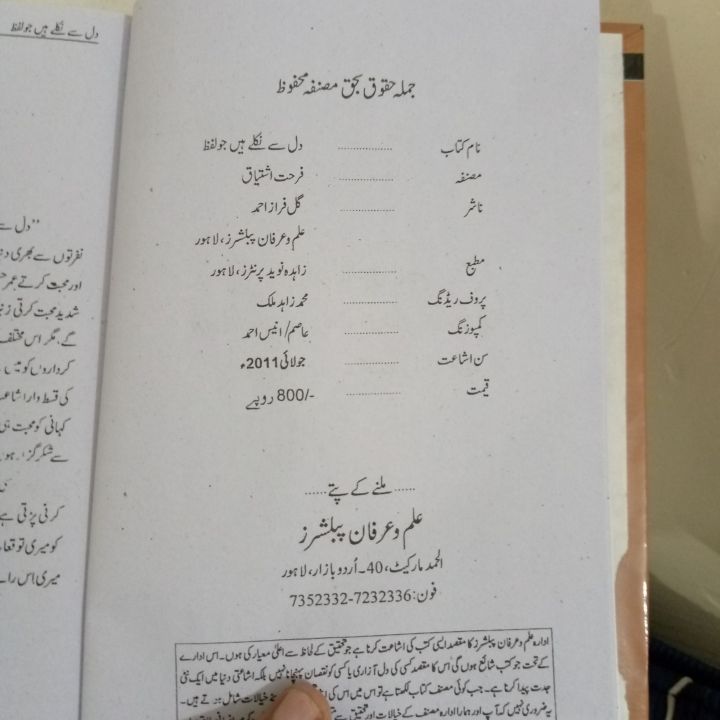 دل سے نکلے ہیں جو لفظ
جملہ حقوق بحق مصنفہ محفوظ
نام کتاب ................ دل سے نکلے ہیں جو لفظ
مصنفہ ................ فرحت اشتیاق
ناشر ................ گل فراز احمد
علم و عرفان پبلشرز، لاہور
مطبع ................ زاہدہ نوید پرنٹرز، لاہور
پروف ریڈنگ ................ محمد زاہد ملک
کمپوزنگ ................ عاصم/ انیس احمد
سن اشاعت ................ جولائی 2011ء
قیمت ................ 800/- روپے
...... ملنے کے پتے ......
علم و عرفان پبلشرز
الحمد مارکیٹ، 40۔ اُردو بازار، لاہور
فون: 7352332-7232336
ادارہ علم و عرفان پبلشرز کا مقصد ایسی کتب کی اشاعت کرنا ہے جو تحقیق کے لحاظ سے اعلیٰ معیار کی ہوں۔ اس ادارے
کے تحت جو کتب شائع ہوں گی اس کا مقصد کسی کی دل آزاری یا کسی کو نقصان پہنچانا نہیں بلکہ اشاعتی دنیا میں ایک نئی
جدت پیدا کرنا ہے۔ جب کوئی مصنف کتاب لکھتا ہے تو اس میں اس کی اپنے خیالات شامل ہوتے ہیں۔
یہ ضروری نہیں کہ آپ اور ہمارا ادارہ مصنف کے خیالات اور تحقیق سے
"دل سے
نفرتوں سے بھری د
اور محبت کرتے عمر
شدید محبت کرتی ز
گے، مگر اس مختلف
کرداروں کو میں
کی قسط وار اشاعت
کہانی کو محبت ہی
سے شکر گزار ہوں
کرنی پڑتی ہے
کو میری توقعا
میری اس را